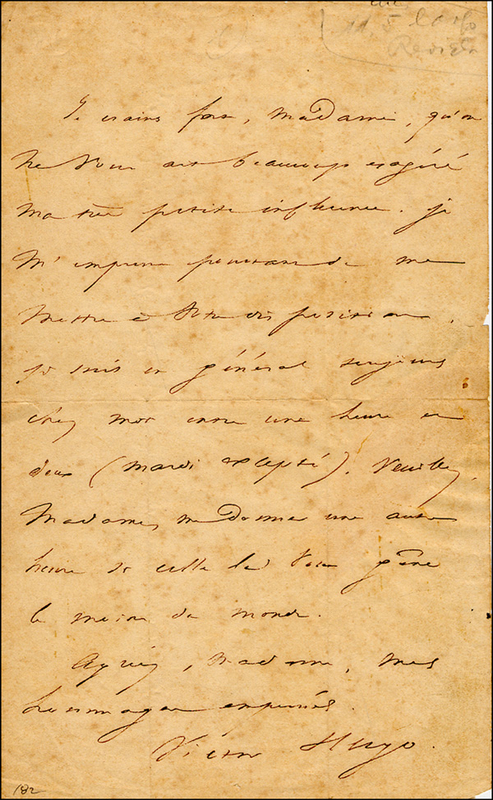 Je crains fort, Madame, qu'on
ne vous ait beaucoup exagéré
ma très petite influence. je
m'empresse pourtant de me
mettre à votre disposition.
je suis en général toujours
chez moi entre une heure et
deux (mardi excepté). Veuillez,
Madame, me donner une autre
heure si celle là vous gêne
le moins du monde.
Agréez, Madame, mes
hommages empressés.
Victor Hugo.
182